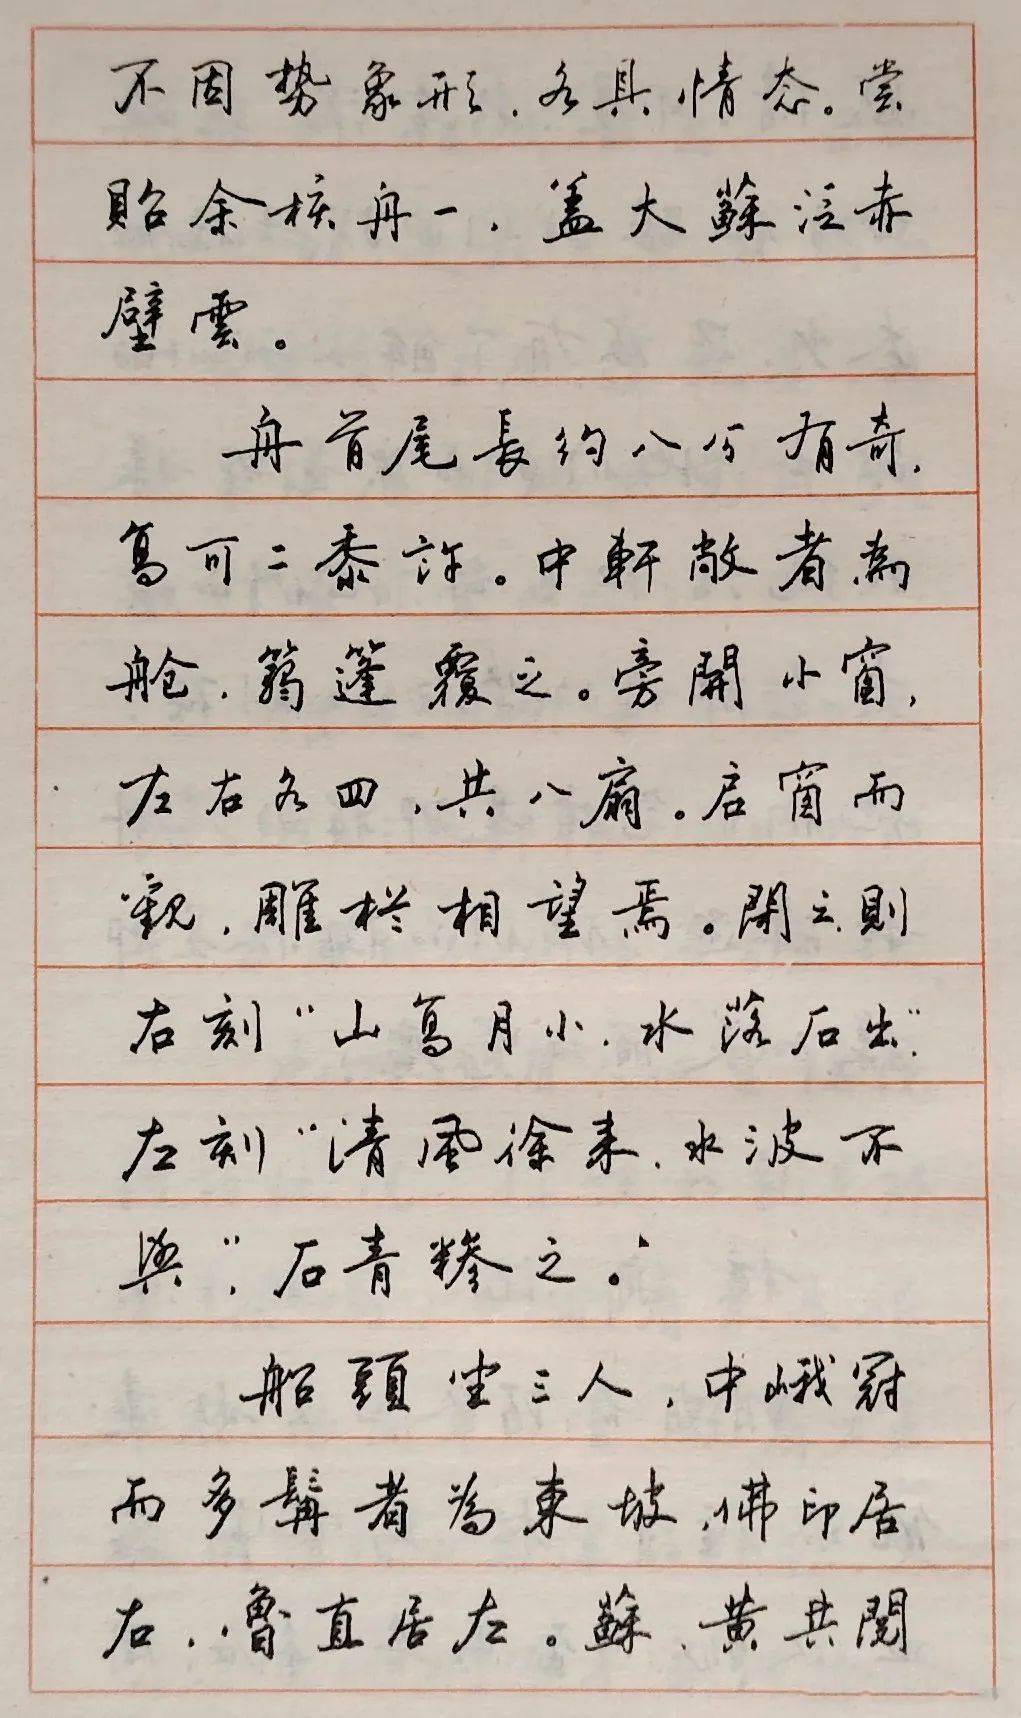 不因势象形，各具情态。尝
貽余核舟一，蓋大蘇泛赤
壁雲。
舟首尾長约八分有奇，
高可二黍許。中軒敞者為
舱，篛篷覆之。旁開小窗，
左右各四，共八扇。启窗而
觀，雕栏相望焉。閉之，則
右刻“山高月小，水落石出”，
左刻“清風徐来，水波不
興”，石青糁之。
船頭坐三人，中峨冠
而多髯者為東坡，佛印居
右，魯直居左。蘇、黄共閱